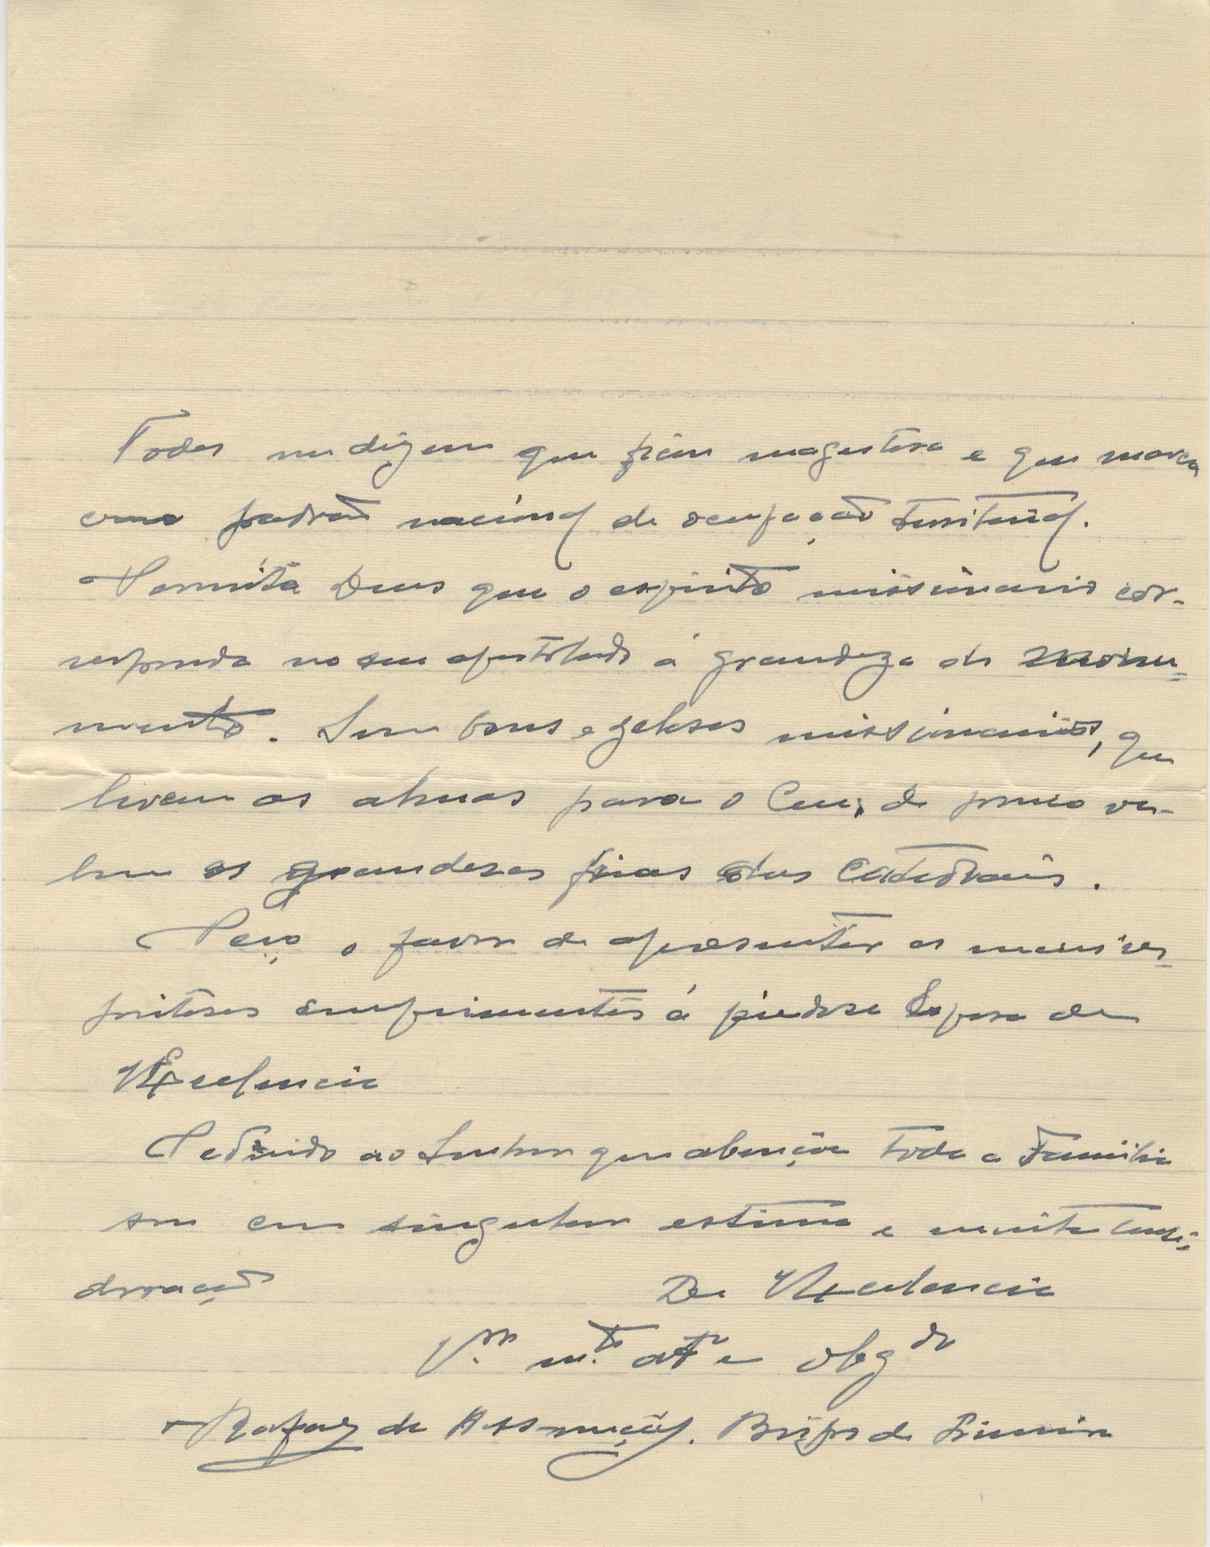 Todos me dizem que ficou magestosa e que marca
como padrão nacional de ocupação territorial.
Permita Deus que o espirito missionario cor-
responda no seu apostolado á grandeza do Monu-
mento. Sem bons e zelosos missionarios, que
levem as almas para o Ceu, de pouco va-
lem as grandezas frias das Catedrais.
Peço o favor de apresentar os meus res-
peitosos cumprimentos á piedosa Esposa de
VExcelencia
Pedindo ao Senhor que abençoe toda a Familia
sou com singular estima e muita consi-
deração De VExcelencia
V.or m.to att.o e obg.do
+ Rafael de Assunção. Bispo de Limira